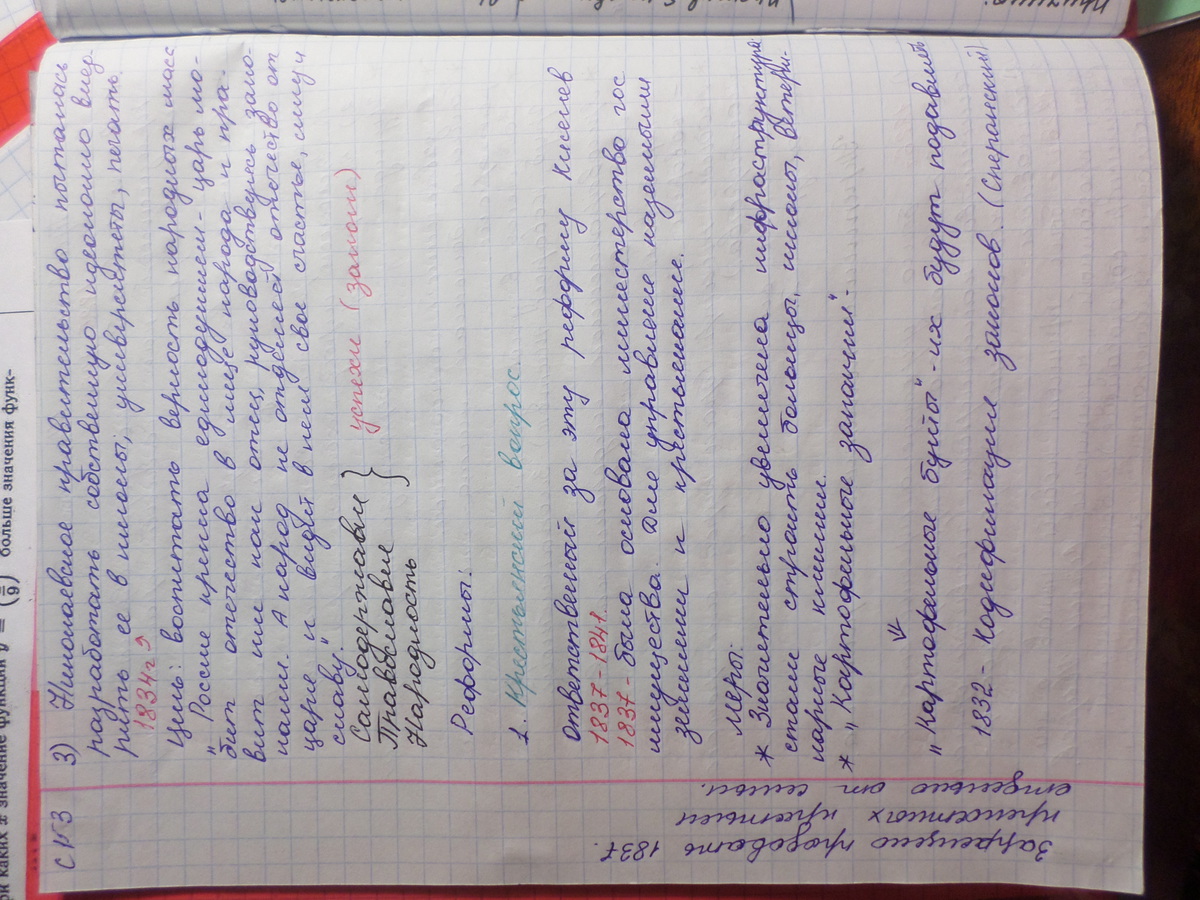 С N3 3) Николаевское правительство пыталась
разработать собственную идеологию внед-
рить ее в школы, университеты, печать.
1834г
Цель: воспитать верность народных масс
"Россие крепка единодушием - царь лю-
бит отечество в лице народа и пра-
вит им как отец, руководствуясь зако-
нами. А народ не отделяет отечество от
царя и видит в нем свое счастье, силу и
славу."
Самодержавие
Православие } успехи (залоги)
Народность
Реформы:
1. Крестьянский вопрос.
ответственный за эту реформу Киселев
1837-1841.
1837 - было основано министерство гос
имущества. Для управление казенными
землями и крестьянами.
Меры:
* Значительно увеличена инфраструктура:
стали строить больницы, школы, ветери-
нарные клиники.
* "Картофельные запашки" -
"Картофельные бунты" - их будут подавлять
1832 - Кодификация законов. (Сперанский)
Запрещено продовать 1837.
крепостных крестьян
отдельно от семьи.
ри каких x значение функции y =
больше значения функ-